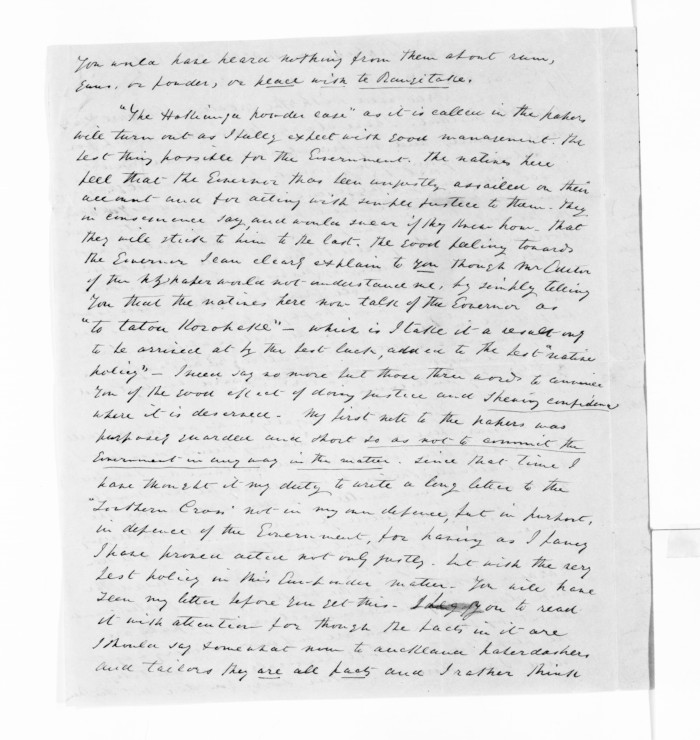 You would have heard nothing from them about rum,
Guns, or powder, or peace with Te Rangitake.
"The Hokianga powder case" as it is called in the papers
will turn out as I fully expect with good management. the
best thing possible for the Government. the natives here
feel that the Governor has been unjustly assailed on their
account and for acting with simple justice to them. they
in consequence say, and would swear if they knew how. that
they will stick to him to the last. the good feeling towards
the Governor I can clearly explain to you though Mr Editor
of the NZ paper would not understand me, by simply telling
You that the natives here now talk of the Governor as
"to tatou Korohake" – which is I take it a result only
to be arrived at by the best luck, added to the best "native
policy" – I need say no more but those three words to convince
You of the good effect of doing justice and shewing confidence
where it is deserved – My first note to the papers was
purposely guarded and short so as not to commit the
Government in any way in the matter. since that time I
have thought it my duty to write a long letter to the
"Southern Cross" not in my own defence, but in
in defence of the Government, for having as I fancy
I have proved acted not only justly. but with the very
best policy in this Gun-powder matter – You will have
seen my letter before you get this – I beg you to read
it with attention for though the facts in it are
I should say somewhat new to auckland haberdashers
and tailors they are all facts and I rather think